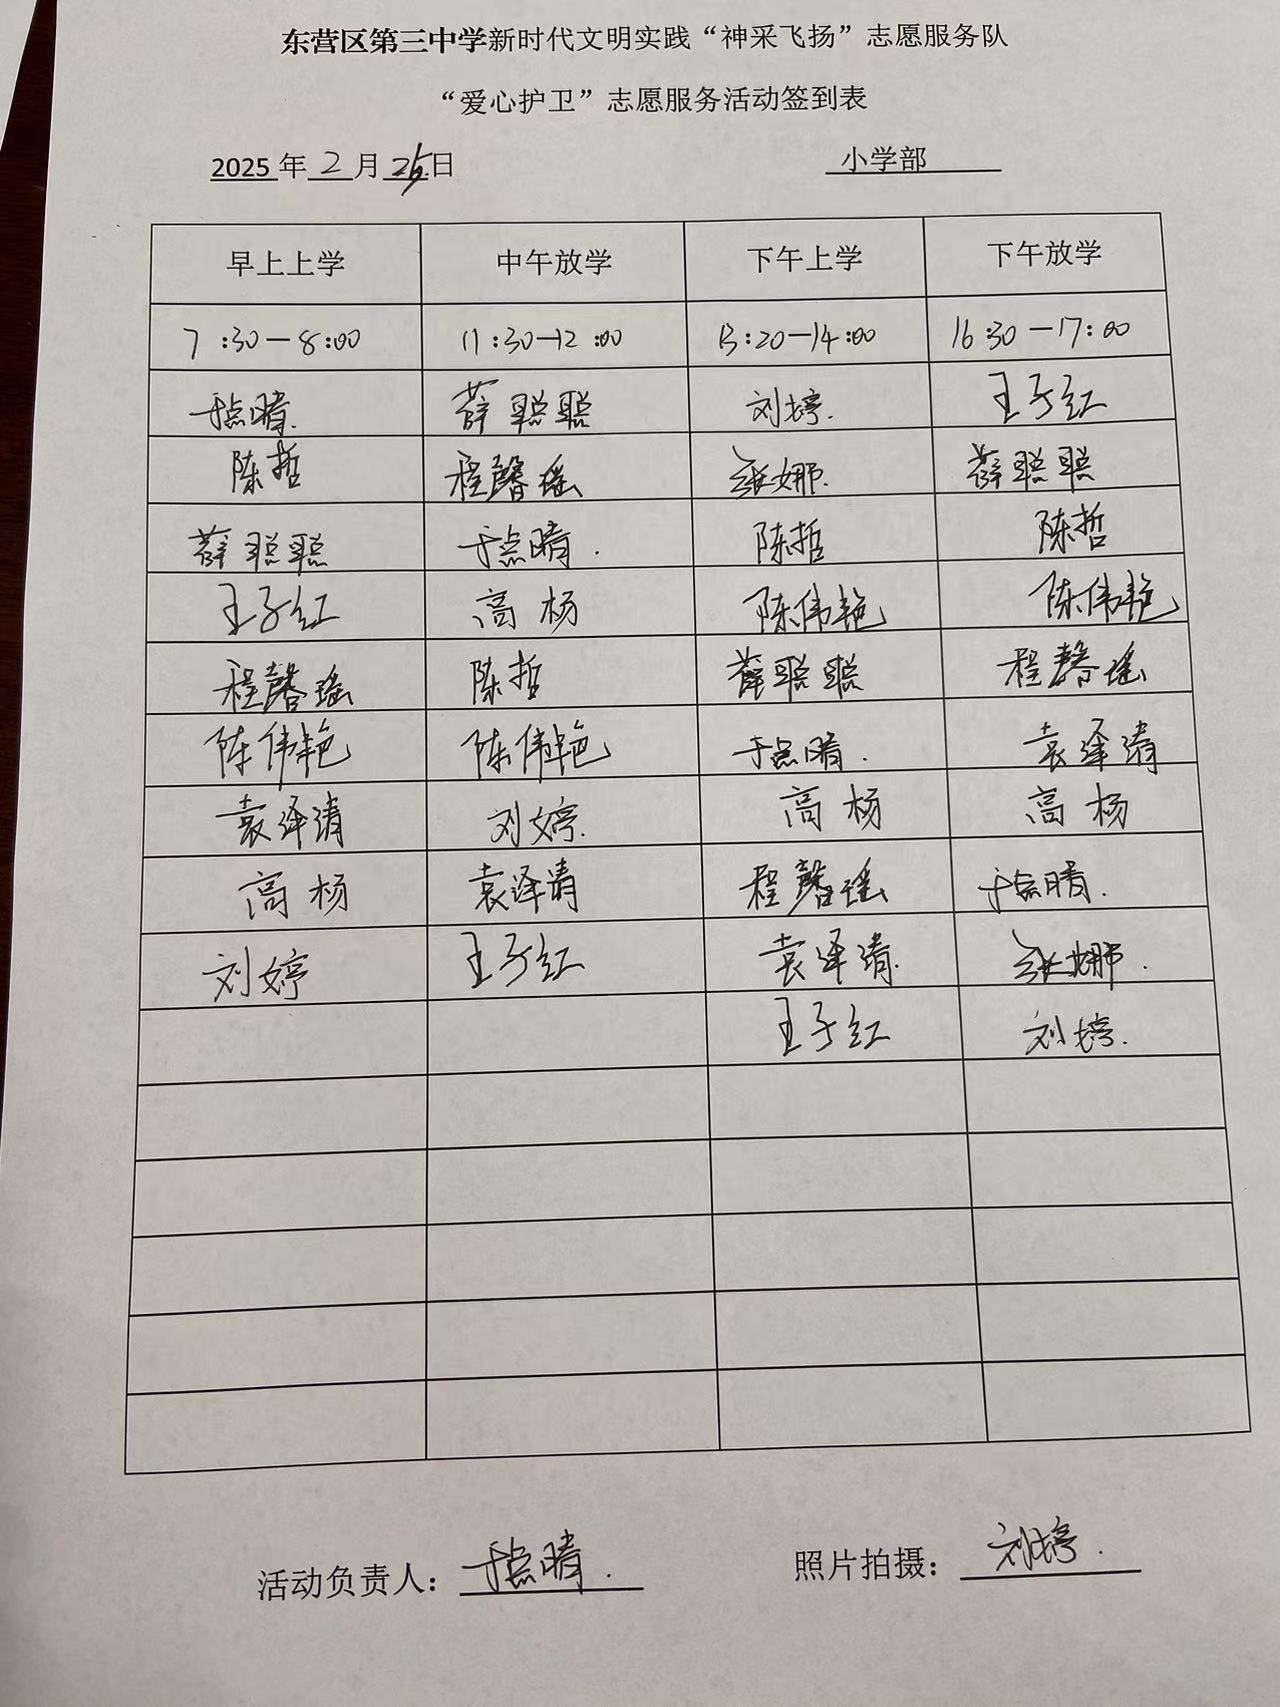 东营区第三中学新时代文明实践“神采飞扬”志愿服务队
“爱心护卫”志愿服务活动签到表
2025年2月25日 小学部
早上上学 中午放学 下午上学 下午放学
7:30—8:00 11:30—12:00 13:20—14:00 16:30—17:00
于点晴 薛聪聪 刘婷 王子红
陈哲 程馨瑶 张娜 薛聪聪
薛聪聪 于点晴 陈哲 陈哲
王子红 高杨 陈伟艳 陈伟艳
程馨瑶 陈哲 薛聪聪 程馨瑶
陈伟艳 陈伟艳 于点晴 袁泽清
袁泽清 刘婷 高杨 高杨
高杨 袁泽清 程馨瑶 于点晴
刘婷 王子红 袁泽清 张娜
王子红 刘婷
活动负责人：于点晴 照片拍摄：刘婷